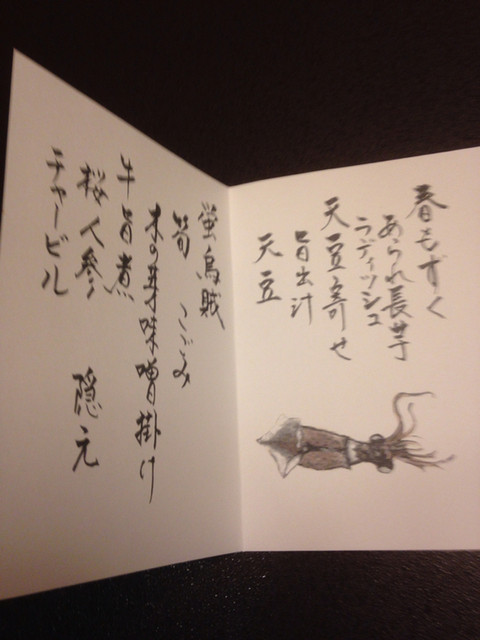 春もずく
あられ長芋
ラディッシュ
天豆寄せ
旨出汁
天豆
螢烏賊
筍 こごみ
木の芽味噌掛け
牛旨煮
桜人参 隠元
チャービル